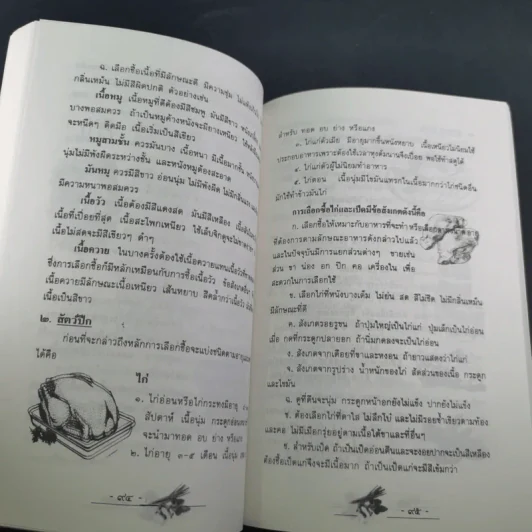 ฉ. เลือกซื้อเนื้อที่มีลักษณะดี มีความชุ่ม ไม่แห้ง
กลิ่นเหม็น ไม่มีสีผิดปกติ ตัวอย่างเช่น
เนื้อหมู เนื้อหมูที่ดีต้องมีสีชมพู มันมีสีขาว
บางพอสมควร ถ้าเป็นหมูค้างหนังจะมียางเหนียว
จะหนืดๆ ติดมือ เนื้อเริ่มเป็นสีเขียว
หมูสามชั้น ควรมันบาง เนื้อหนา มีเนื้อมากชั้น
นุ่มไม่มีพังผืดระหว่างชั้น และหนังหมูต้องสะอาด
มันหมู ควรมีสีขาว อ่อนนุ่ม ไม่มีพังผืด
มีความหนาพอสมควร
เนื้อวัว เนื้อต้องมีสีแดงสด มันมีสีเหลือง
เนื้อที่เปื่อยที่สุด เนื้อสะโพกเหนียว ใช้เล็บจิกดูจะไม่ขาด
เนื้อไม่สดจะมีสีเขียวๆ ดำๆ
เนื้อควาย ในบางครั้งต้องใช้เนื้อควายแทนเนื้อวัว
ซึ่งการเลือกซื้อก็มีหลักเหมือนกับการซื้อเนื้อวัว ข้อสังเกต
เนื้อควายมีลักษณะเนื้อเหนียว เส้นหยาบ สีคล้ำกว่าเนื้อวัว
เนื้อเป็นสีขาว
๒. สัตว์ปีก
ก่อนที่จะกล่าวถึงหลักการเลือกซื้อจะแบ่งชนิดตาม
ได้คือ
ไก่
๑. ไก่อ่อนหรือไก่กระทงมีอายุ
สัปดาห์ เนื้อนุ่ม กระดูกอ่อน
จะนำมาทอด อบ ย่าง หรือแกง
๒. ไก่อายุ ๓-๕ เดือน เนื้อนุ่ม
- ๙๔ -
สำหรับ ทอด อบ ย่าง หรือแกง
๓. ไก่แก่ตัวเมีย มีอายุมากขึ้นหนังหยาบ เนื้อเหนียวไม่นิยมใช้
ประกอบอาหารเพราะต้องใช้เวลาหุงต้มนานจึงเปื่อย พอใช้ทำสตูได้
๔. ไก่แก่ตัวผู้ไม่นิยมทำอาหาร
๕. ไก่ตอน เนื้อนุ่มมีไขมันแทรกในเนื้อมากกว่าไก่ชนิดอื่น
มักใช้ทำข้าวมันไก่
การเลือกซื้อไก่และเป็ดมีข้อสังเกตดังนี้คือ
ก. เลือกซื้อให้เหมาะกับอาหารที่จะทำหรือเลือก
ที่ต้องการตามลักษณะอาหารดังกล่าวไปแล้ว
และในปัจจุบันมีการแยกส่วนต่างๆ ขายเช่น
ส่วน ขา น่อง อก ปีก คอ เครื่องใน เพื่อ
สะดวกในการเลือกใช้
ข. เลือกไก่ที่หนังบางเต็ม ไม่ย่น สด สีไม่ซีด ไม่มีกลิ่นเหม็น
มีลักษณะที่ดี
ค. สังเกตรอยรูขน ถ้าปุ่มใหญ่เป็นไก่แก่ ปุ่มเล็กเป็นไก่อ่อน
เมื่อ กดที่กระดูกปลายอก ถ้านิ่มกดลงจะเป็นไก่อ่อน
ง. สังเกตจากเดือยที่ขาและหงอน ถ้ายาวแสดงว่าไก่แก่
จ. สังเกตจากรูปร่าง น้ำหนักของไก่ สัดส่วนของเนื้อ กระดูก
และไขมัน
ฉ. ดูที่ตีนจะนุ่ม กระดูกหน้าอกยังไม่แข็ง ปากยังไม่แข็ง
ช. ต้องเลือกไก่ที่ตาใส ไม่ลึกโบ๋ และไม่มีรอยช้ำเขียวตามท้อง
และคอ ไม่มีเมือกวุ้นอยู่ตามเนื้อใต้ขาและที่อื่นๆ
ซ. สำหรับเป็ด ถ้าเป็นเป็ดอ่อนตีนและจะงอยปากจะเป็นสีเหลือง
ต้องซื้อเป็ดแก่จึงจะมีเนื้อมาก ถ้าเป็นเป็ดแก่จะมีสีเข้มกว่า
- ๙๕ -